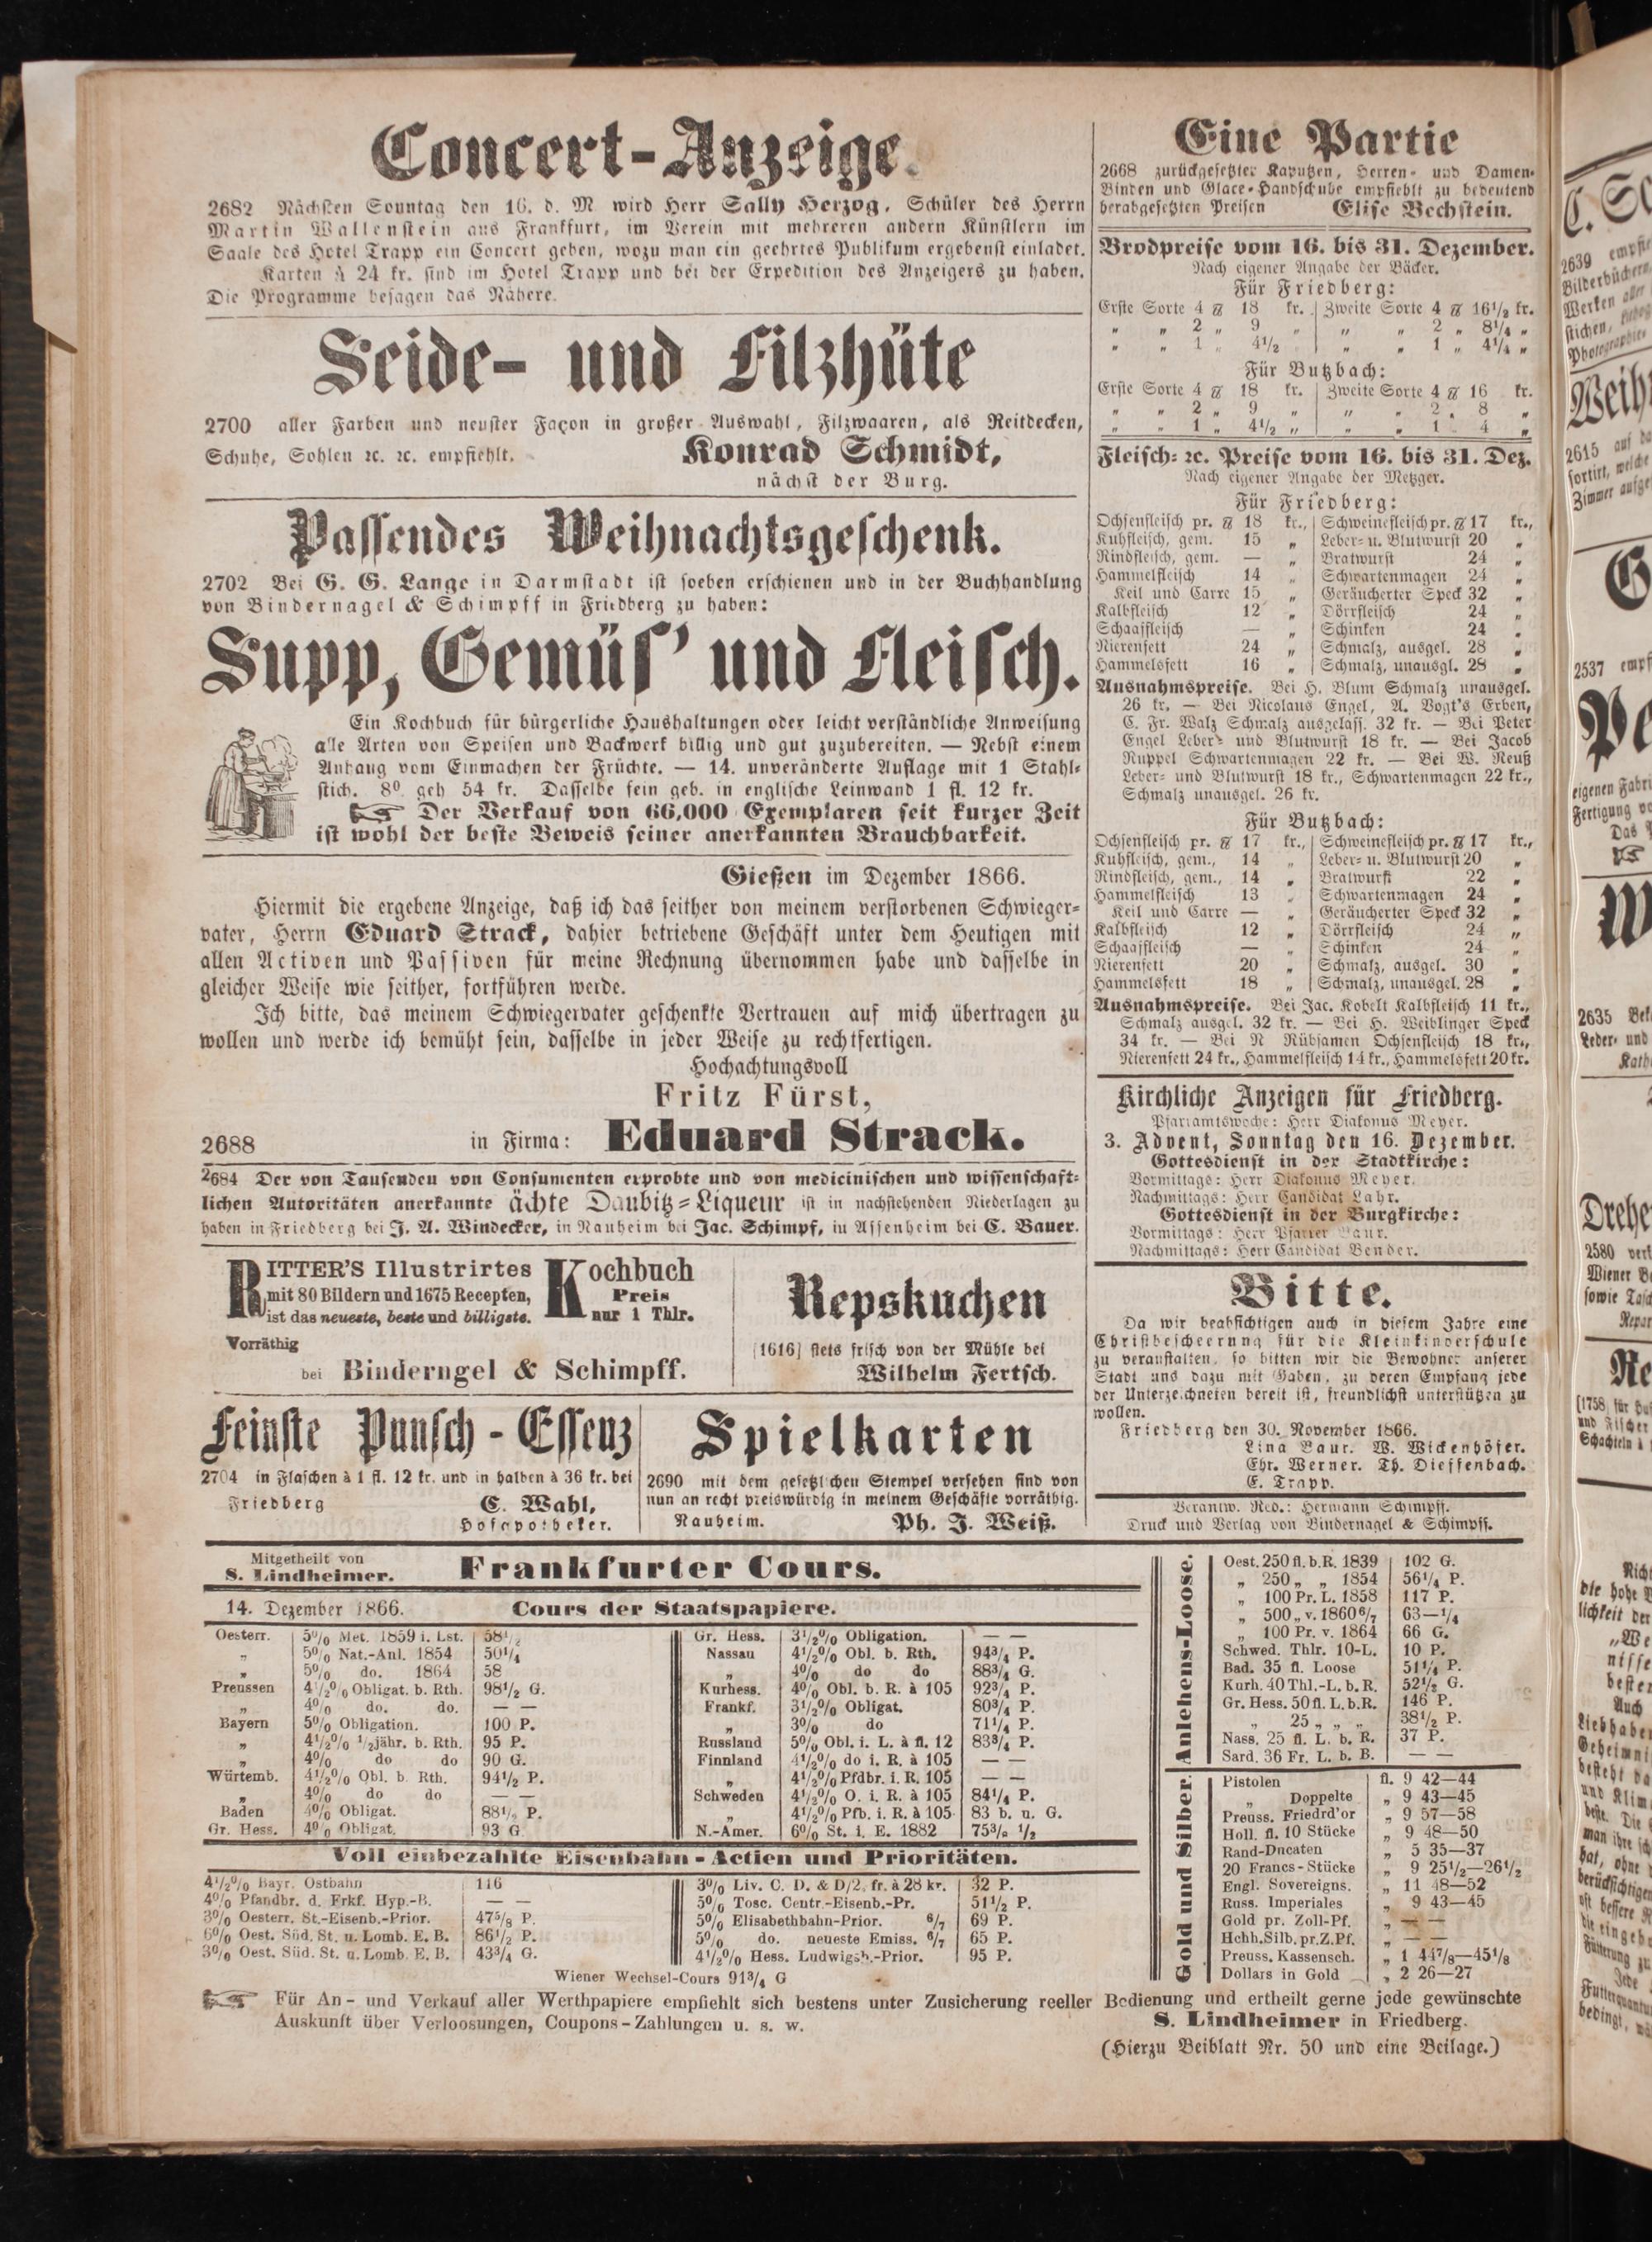 Concert-Anzeige.
2682 Nächsten Sonntag den 16. d. M wird Herr Sally Herzog, Schüler des Herrn
Martin Wallenstein aus Frankfurt, im Verein mit mehreren andern Künstlern im
Saale des Hotel Trapp ein Concert geben, wozu man ein geehrtes Publikum ergebenst einladet.
Karten à 24 kr. sind im Hotel Trapp und bei der Expedition des Anzeigers zu haben.
Die Programme besagen das Nähere.
Seide- und Filzhüte
2700 aller Farben und neuster Façon in großer Auswahl, Filzwaaren, als Reitdecken,
Schuhe, Sohlen ꝛc. ꝛc. empfiehlt. Konrad Schmidt,
nächst der Burg.
Passendes Weihnachtsgeschenk.
2702 Bei G. G. Lange in Darmstadt ist soeben erschienen und in der Buchhandlung
von Bindernagel & Schimpff in Friedberg zu haben:
Supp, Gemüs' und Fleisch.
Ein Kochbuch für bürgerliche Haushaltungen oder leicht verständliche Anweisung
alle Arten von Speisen und Backwerk billig und gut zuzubereiten. — Nebst einem
Anhang vom Einmachen der Früchte. — 14. unveränderte Auflage mit 1 Stahl-
stich. 8° geh 54 kr. Dasselbe fein geb. in englische Leinwand 1 fl. 12 kr.
☞ Der Verkauf von 66,000 Exemplaren seit kurzer Zeit
ist wohl der beste Beweis seiner anerkannten Brauchbarkeit.
Gießen im Dezember 1866.
Hiermit die ergebene Anzeige, daß ich das seither von meinem verstorbenen Schwieger-
vater, Herrn Eduard Strack, dahier betriebene Geschäft unter dem Heutigen mit
allen Activen und Passiven für meine Rechnung übernommen habe und dasselbe in
gleicher Weise wie seither, fortführen werde.
Ich bitte, das meinem Schwiegervater geschenkte Vertrauen auf mich übertragen zu
wollen und werde ich bemüht sein, dasselbe in jeder Weise zu rechtfertigen.
Hochachtungsvoll
Fritz Fürst,
2688 in Firma: Eduard Strack.
2684 Der von Tausenden von Consumenten erprobte und von medicinischen und wissenschaft-
lichen Autoritäten anerkannte ächte Daubitz-Liqueur ist in nachstehenden Niederlagen zu
haben in Friedberg bei J. A. Windecker, in Nauheim bei Jac. Schimpf, in Assenheim bei C. Bauer.
RITTER'S Illustrirtes Kochbuch
mit 80 Bildern und 1675 Recepten, Preis
ist das neueste, beste und billigste. nur 1 Thlr.
Vorräthig
bei Binderngel & Schimpff.
Repskuchen
[1616] stets frisch von der Mühle bei
Wilhelm Fertsch.
Feinste Punsch-Essenz
2704 in Flaschen à 1 fl. 12 kr. und in halben à 36 kr. bei
Friedberg C. Wahl,
Hofapotheker.
Spielkarten
2690 mit dem gesetzlichen Stempel versehen sind von
nun an recht preiswürdig in meinem Geschäfte vorräthig.
Nauheim. Ph. J. Weiß.
Eine Partie
2668 zurückgesetzter Kaputzen, Herren- und Damen-
Binden und Glace-Handschuhe empfiehlt zu bedeutend
herabgesetzten Preisen Elise Bechstein.
Brodpreise vom 16. bis 31. Dezember.
Nach eigener Angabe der Bäcker.
Für Friedberg:
Erste Sorte 4 ℔ 18 kr. Zweite Sorte 4 ℔ 16 1/2 kr.
„ „ 2 „ 9 „ „ „ 2 „ 8 1/4 „
„ „ 1 „ 4 1/2 „ „ 1 „ 4 1/4 „
Für Butzbach:
Erste Sorte 4 ℔ 18 kr. Zweite Sorte 4 ℔ 16 kr.
„ „ 2 „ 9 „ „ „ 2 „ 8 „
„ „ 1 „ 4 1/2 „ „ „ 1 4 „
Fleisch- ꝛc. Preise vom 16. bis 31. Dez.
Nach eigener Angabe der Metzger.
Für Friedberg:
Ochsenfleisch pr. ℔ 18 kr., Schweinefleisch pr. ℔ 17 kr.,
Kuhfleisch, gem. 15 „ Leber- u. Blutwurst 20 „
Rindfleisch, gem. — „ Bratwurst 24 „
Hammelfleisch 14 „ Schwartenmagen 24 „
Keil und Carre 15 „ Geräucherter Speck 32 „
Kalbfleisch 12 „ Dörrfleisch 24 „
Schaaffleisch — „ Schinken 24 „
Nierenfett 24 „ Schmalz, ausgel. 28 „
Hammelsfett 16 „ Schmalz, unausgl. 28 „
Ausnahmspreise. Bei H. Blum Schmalz unausgel.
26 kr. — Bei Nicolaus Engel, A. Vogt's Erben,
C. Fr. Walz Schmalz ausgelass. 32 kr. — Bei Peter
Engel Leber- und Blutwurst 18 kr. — Bei Jacob
Ruppel Schwartenmagen 22 kr. — Bei W. Reuß
Leber- und Blutwurst 18 kr., Schwartenmagen 22 kr.,
Schmalz unausgel. 26 kr.
Für Butzbach:
Ochsenfleisch pr. ℔ 17 kr., Schweinefleisch pr. ℔ 17 kr.,
Kuhfleisch, gem., 14 „ Leber- u. Blutwurst 20 „
Rindfleisch, gem., 14 „ Bratwurst 22 „
Hammelfleisch 13 „ Schwartenmagen 24 „
Keil und Carre — „ Geräucherter Speck 32 „
Kalbfleisch 12 „ Dörrfleisch 24 „
Schaaffleisch — „ Schinken 24 „
Nierenfett 20 „ Schmalz, ausgel. 30 „
Hammelsfett 18 „ Schmalz, unausgel. 28 „
Ausnahmspreise. Bei Jac. Kobelt Kalbfleisch 11 kr.,
Schmalz ausgel. 32 kr. — Bei H. Weiblinger Speck
34 kr. — Bei N Rübsamen Ochsenfleisch 18 kr.,
Nierenfett 24 kr., Hammelfleisch 14 kr., Hammelsfett 20 kr.
Kirchliche Anzeigen für Friedberg.
Pfarramtswoche: Herr Diakonus Meyer.
3. Advent, Sonntag den 16. Dezember.
Gottesdienst in der Stadtkirche:
Vormittags: Herr Diakonus Meyer.
Nachmittags: Herr Candidat Lahr.
Gottesdienst in der Burgkirche:
Vormittags: Herr Pfarrer Baur.
Nachmittags: Herr Candidat Bender.
Bitte.
Da wir beabsichtigen auch in diesem Jahre eine
Christbescheerung für die Kleinkinderschule
zu veranstalten, so bitten wir die Bewohner unserer
Stadt uns dazu mit Gaben, zu deren Empfang jede
der Unterzeichneten bereit ist, freundlichst unterstützen zu
wollen.
Friedberg den 30. November 1866.
Lina Baur. W. Wickenhöfer.
Chr. Werner. Th. Dieffenbach.
E. Trapp.
Verantw. Red.: Hermann Schimpff.
Druck und Verlag von Bindernagel & Schimpff.
Mitgetheilt von
S. Lindheimer. Frankfurter Cours.
14. Dezember 1866. Cours der Staatspapiere.
Oesterr. 5% Met. 1859 i. Lst. 58 1/2
„ 5% Nat.-Anl. 1854 50 1/4
„ 5% do. 1864 58
Preussen 4 1/2% Obligat. b. Rth. 98 1/2 G.
„ 4% do. do. — —
Bayern 5% Obligation. 100 P.
„ 4 1/2% 1/2jähr. b. Rth. 95 P.
„ 4% do do 90 G.
Würtemb. 4 1/2% Obl. b. Rth. 94 1/2 P.
„ 4% do do — —
Baden 4% Obligat. 88 1/2 P.
Gr. Hess. 4% Obligat. 93 G
Gr. Hess. 3 1/2% Obligation. — —
Nassau 4 1/2% Obl. b. Rth. 94 3/4 P.
„ 4% do do 88 3/4 G.
Kurhess. 4% Obl. b. R. à 105 92 3/4 P.
Frankf. 3 1/2% Obligat. 80 3/4 P.
„ 3% do 71 1/4 P.
Russland 5% Obl. i. L. à fl. 12 83 3/4 P.
Finnland 4 1/2% do i. R. à 105 — —
„ 4 1/2% Pfdbr. i. R. 105 — —
Schweden 4 1/2% O. i. R. à 105 84 1/4 P.
„ 4 1/2% Pfb. i. R. à 105 83 b. u. G.
N.-Amer. 6% St. i. E. 1882 75 3/8 1/2
Voll einbezahlte Eisenbahn-Actien und Prioritäten.
4 1/2% Bayr. Ostbahn 116
4% Pfandbr. d. Frkf. Hyp.-B. — —
3% Oesterr. St.-Eisenb.-Prior. 47 5/8 P.
6% Oest. Süd. St. u. Lomb. E. B. 86 1/2 P.
3% Oest. Süd. St. u. Lomb. E. B. 43 3/4 G.
3% Liv. C. D. & D/2. fr. à 28 kr. 32 P.
5% Tosc. Centr.-Eisenb.-Pr. 51 1/2 P.
5% Elisabethbahn-Prior. 6/7 69 P.
5% do. neueste Emiss. 6/7 65 P.
4 1/2% Hess. Ludwigsb.-Prior. 95 P.
Wiener Wechsel-Cours 91 3/4 G
Anlehens-Loose.
Oest. 250 fl. b. R. 1839 102 G.
„ 250 „ „ 1854 56 1/4 P.
„ 100 Pr. L. 1858 117 P.
„ 500 „ v. 1860 6/7 63—1/4
„ 100 Pr. v. 1864 66 G.
Schwed. Thlr. 10-L. 10 P.
Bad. 35 fl. Loose 51 1/4 P.
Kurh. 40 Thl.-L. b. R. 52 1/2 G.
Gr. Hess. 50 fl. L. b. R. 146 P.
„ 25 „ „ „ 38 1/2 P.
Nass. 25 fl. L. b. R. 37 P.
Sard. 36 Fr. L. b. B. — —
Gold und Silber.
Pistolen fl. 9 42—44
„ Doppelte „ 9 43—45
Preuss. Friedrd'or „ 9 57—58
Holl. fl. 10 Stücke „ 9 48—50
Rand-Ducaten „ 5 35—37
20 Francs-Stücke „ 9 25 1/2—26 1/2
Engl. Sovereigns. „ 11 48—52
Russ. Imperiales „ 9 43—45
Gold pr. Zoll-Pf. „ — —
Hchh. Silb. pr. Z. Pf. „ — —
Preuss. Kassensch. „ 1 44 7/8—45 1/8
Dollars in Gold „ 2 26—27
☞ Für An- und Verkauf aller Werthpapiere empfiehlt sich bestens unter Zusicherung reeller Bedienung und ertheilt gerne jede gewünschte
Auskunft über Verloosungen, Coupons-Zahlungen u. s. w. S. Lindheimer in Friedberg.
(Hierzu Beiblatt Nr. 50 und eine Beilage.)